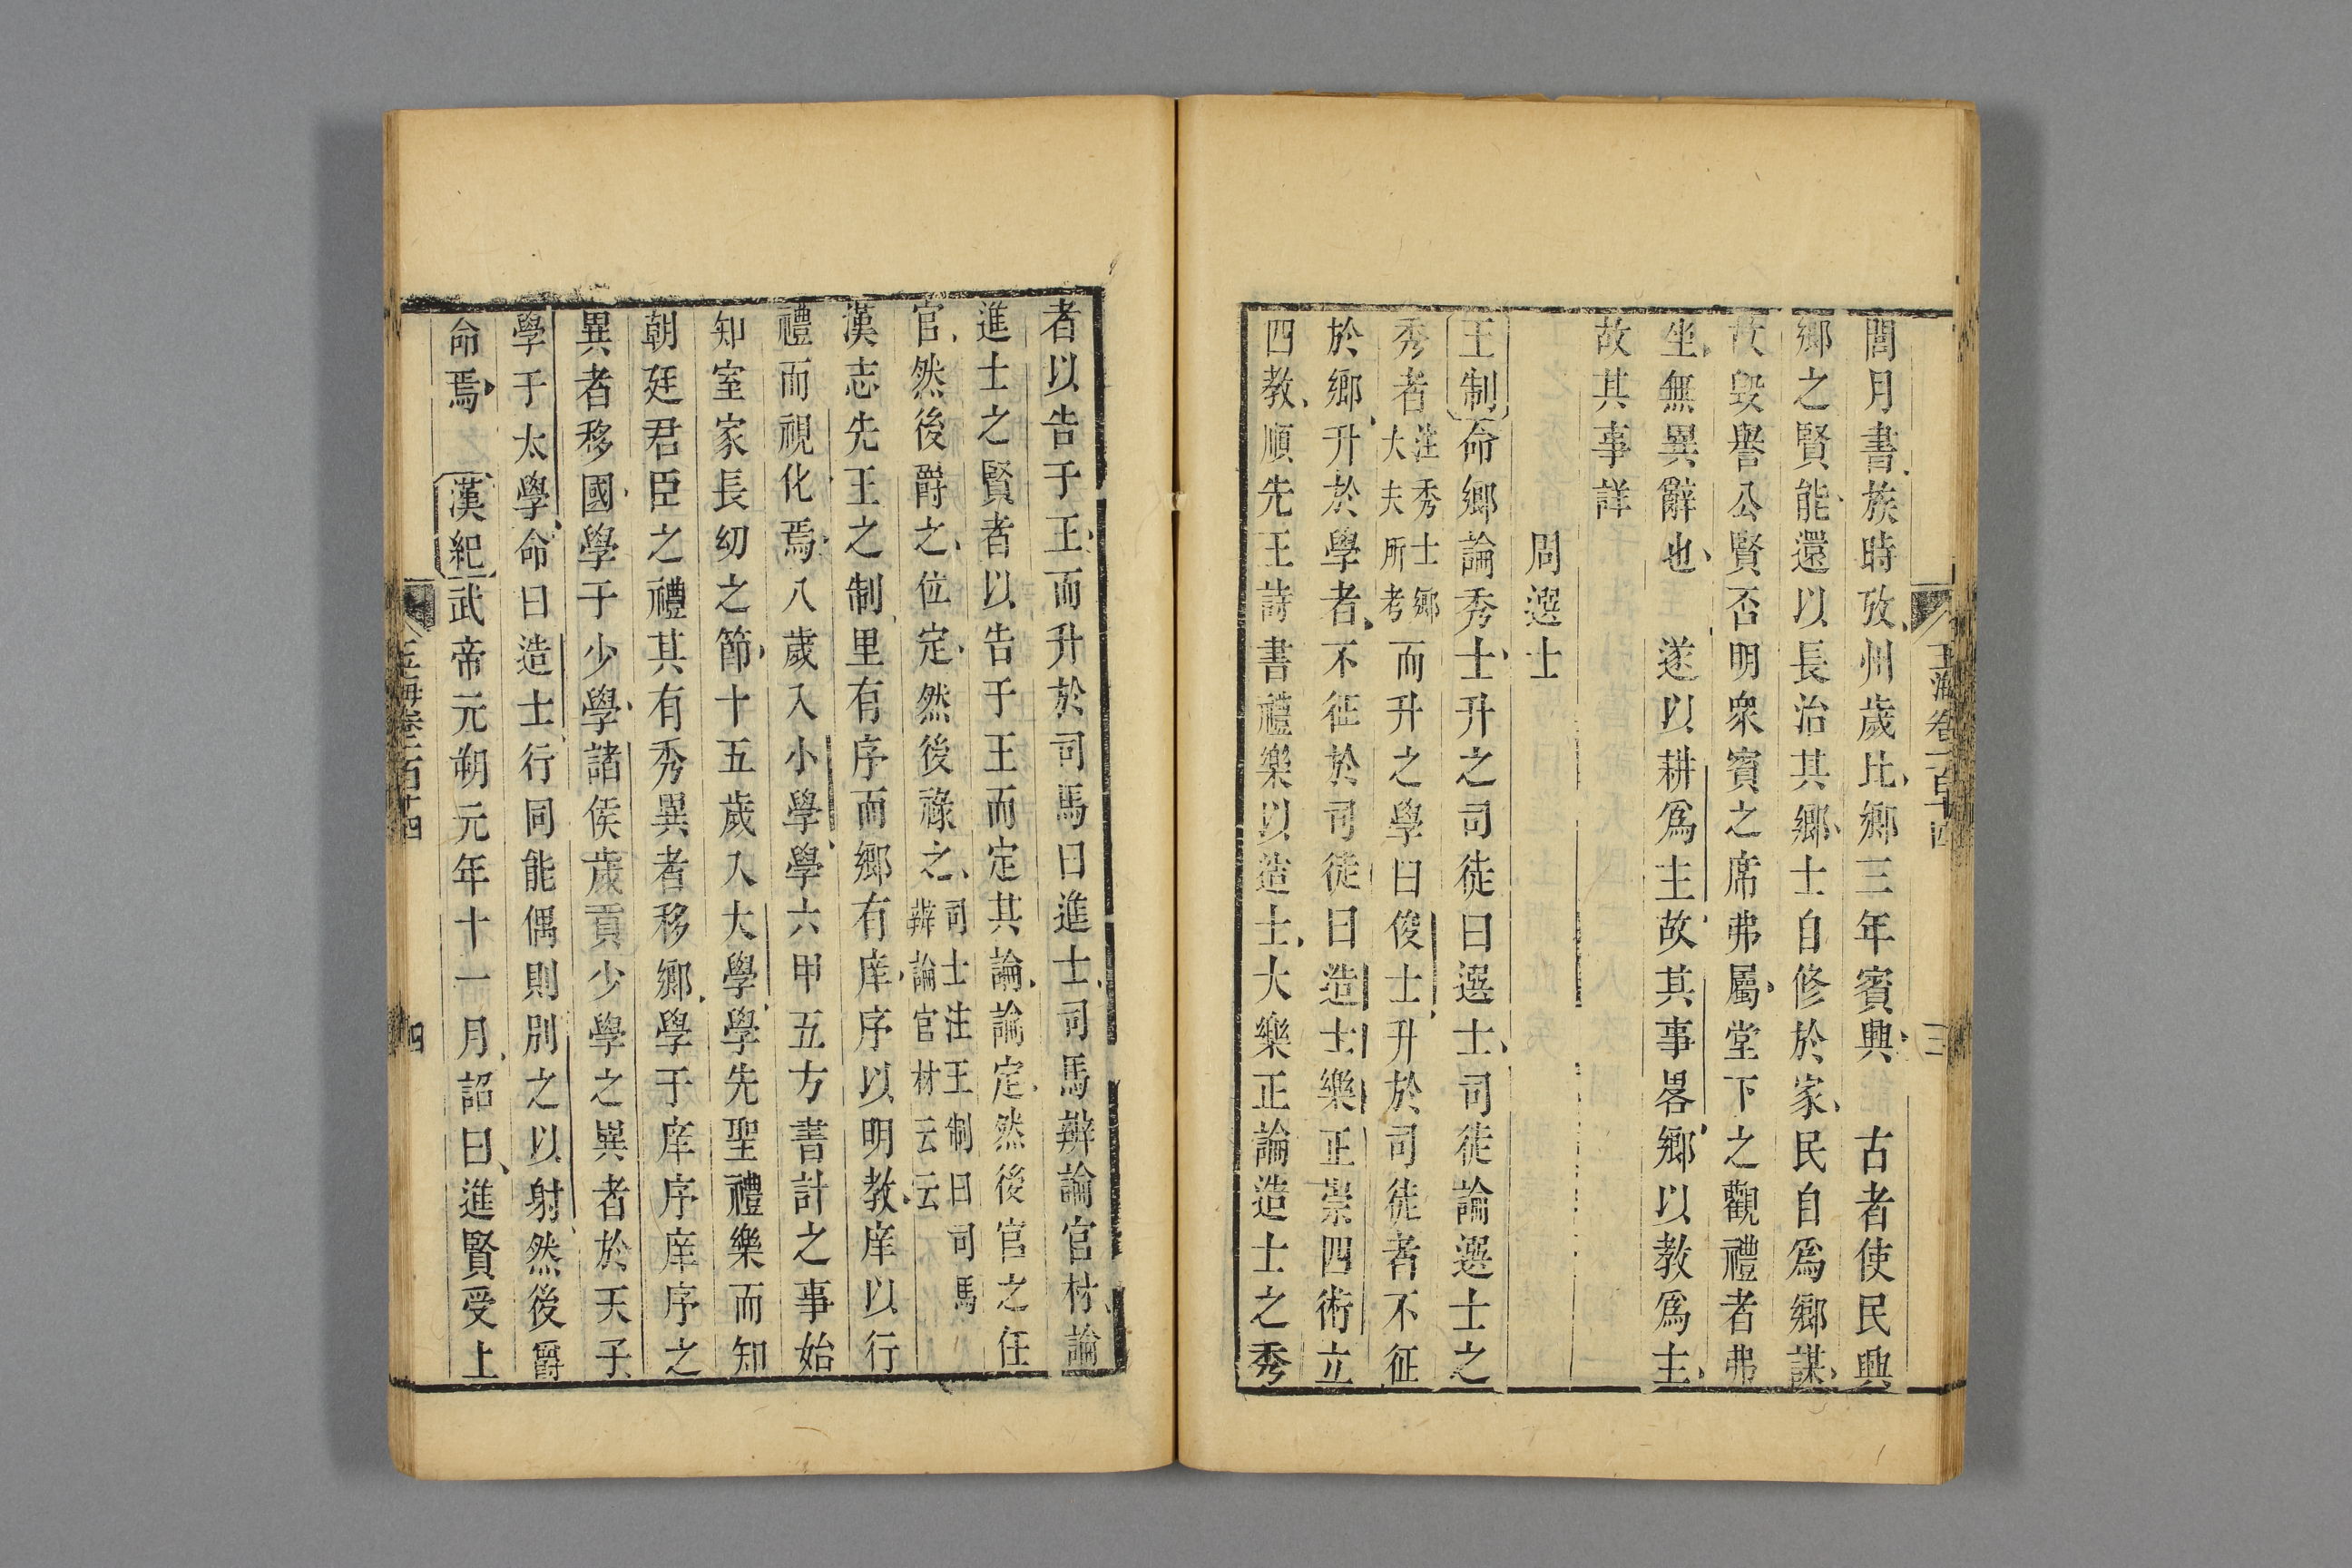 玉海卷一百十四
三
閭月書族時攷州歲比鄉三年賓興 古者使民興
鄉之賢能還以長治其鄉士自修於家民自爲鄉謀
故毀譽公賢否明衆賓之席弗屬堂下之觀禮者弗
坐無異辭也 遂以耕爲主故其事畧鄉以教爲主
故其事詳
周選士
王制命鄉論秀士升之司徒曰選士司徒論選士之
秀者注秀士鄉大夫所考而升之學曰俊士升於司徒者不征
於鄉升於學者不征於司徒曰造士樂正崇四術立
四教順先王詩書禮樂以造士大樂正論造士之秀
者以告于王而升於司馬曰進士司馬辨論官材論
進士之賢者以告于王而定其論論定然後官之任
官然後爵之位定然後祿之司士注王制曰司馬辨論官材云云
漢志先王之制里有序而鄉有庠序以明教庠以行
禮而視化焉八歲入小學學六甲五方書計之事始
知室家長幼之節十五歲入大學學先聖禮樂而知
朝廷君臣之禮其有秀異者移鄉學于庠序庠序之
異者移國學于少學諸侯歲貢少學之異者於天子
學于太學命曰造士行同能偶則別之以射然後爵
命焉 漢紀武帝元朔元年十一月詔曰進賢受上
玉海卷一百十四
四